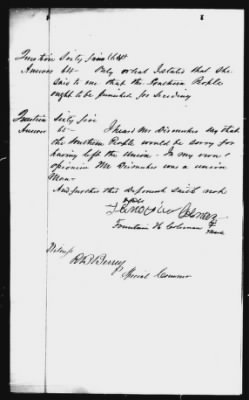 Question Sixty four
Answer 64- Only what I stated that she
said to me that the Southern People
ought to be punished for Seceding
Question Sixty five
Answer 65- I heard Mr Dismukes say that
the Southern People would be sorry for
having left the Union. In my own
opinion Mr Dismukes was a union
Man-
And further this deponent saith not
his
Fountain H Coleman
mark
Witness
Berrey
Special Commr